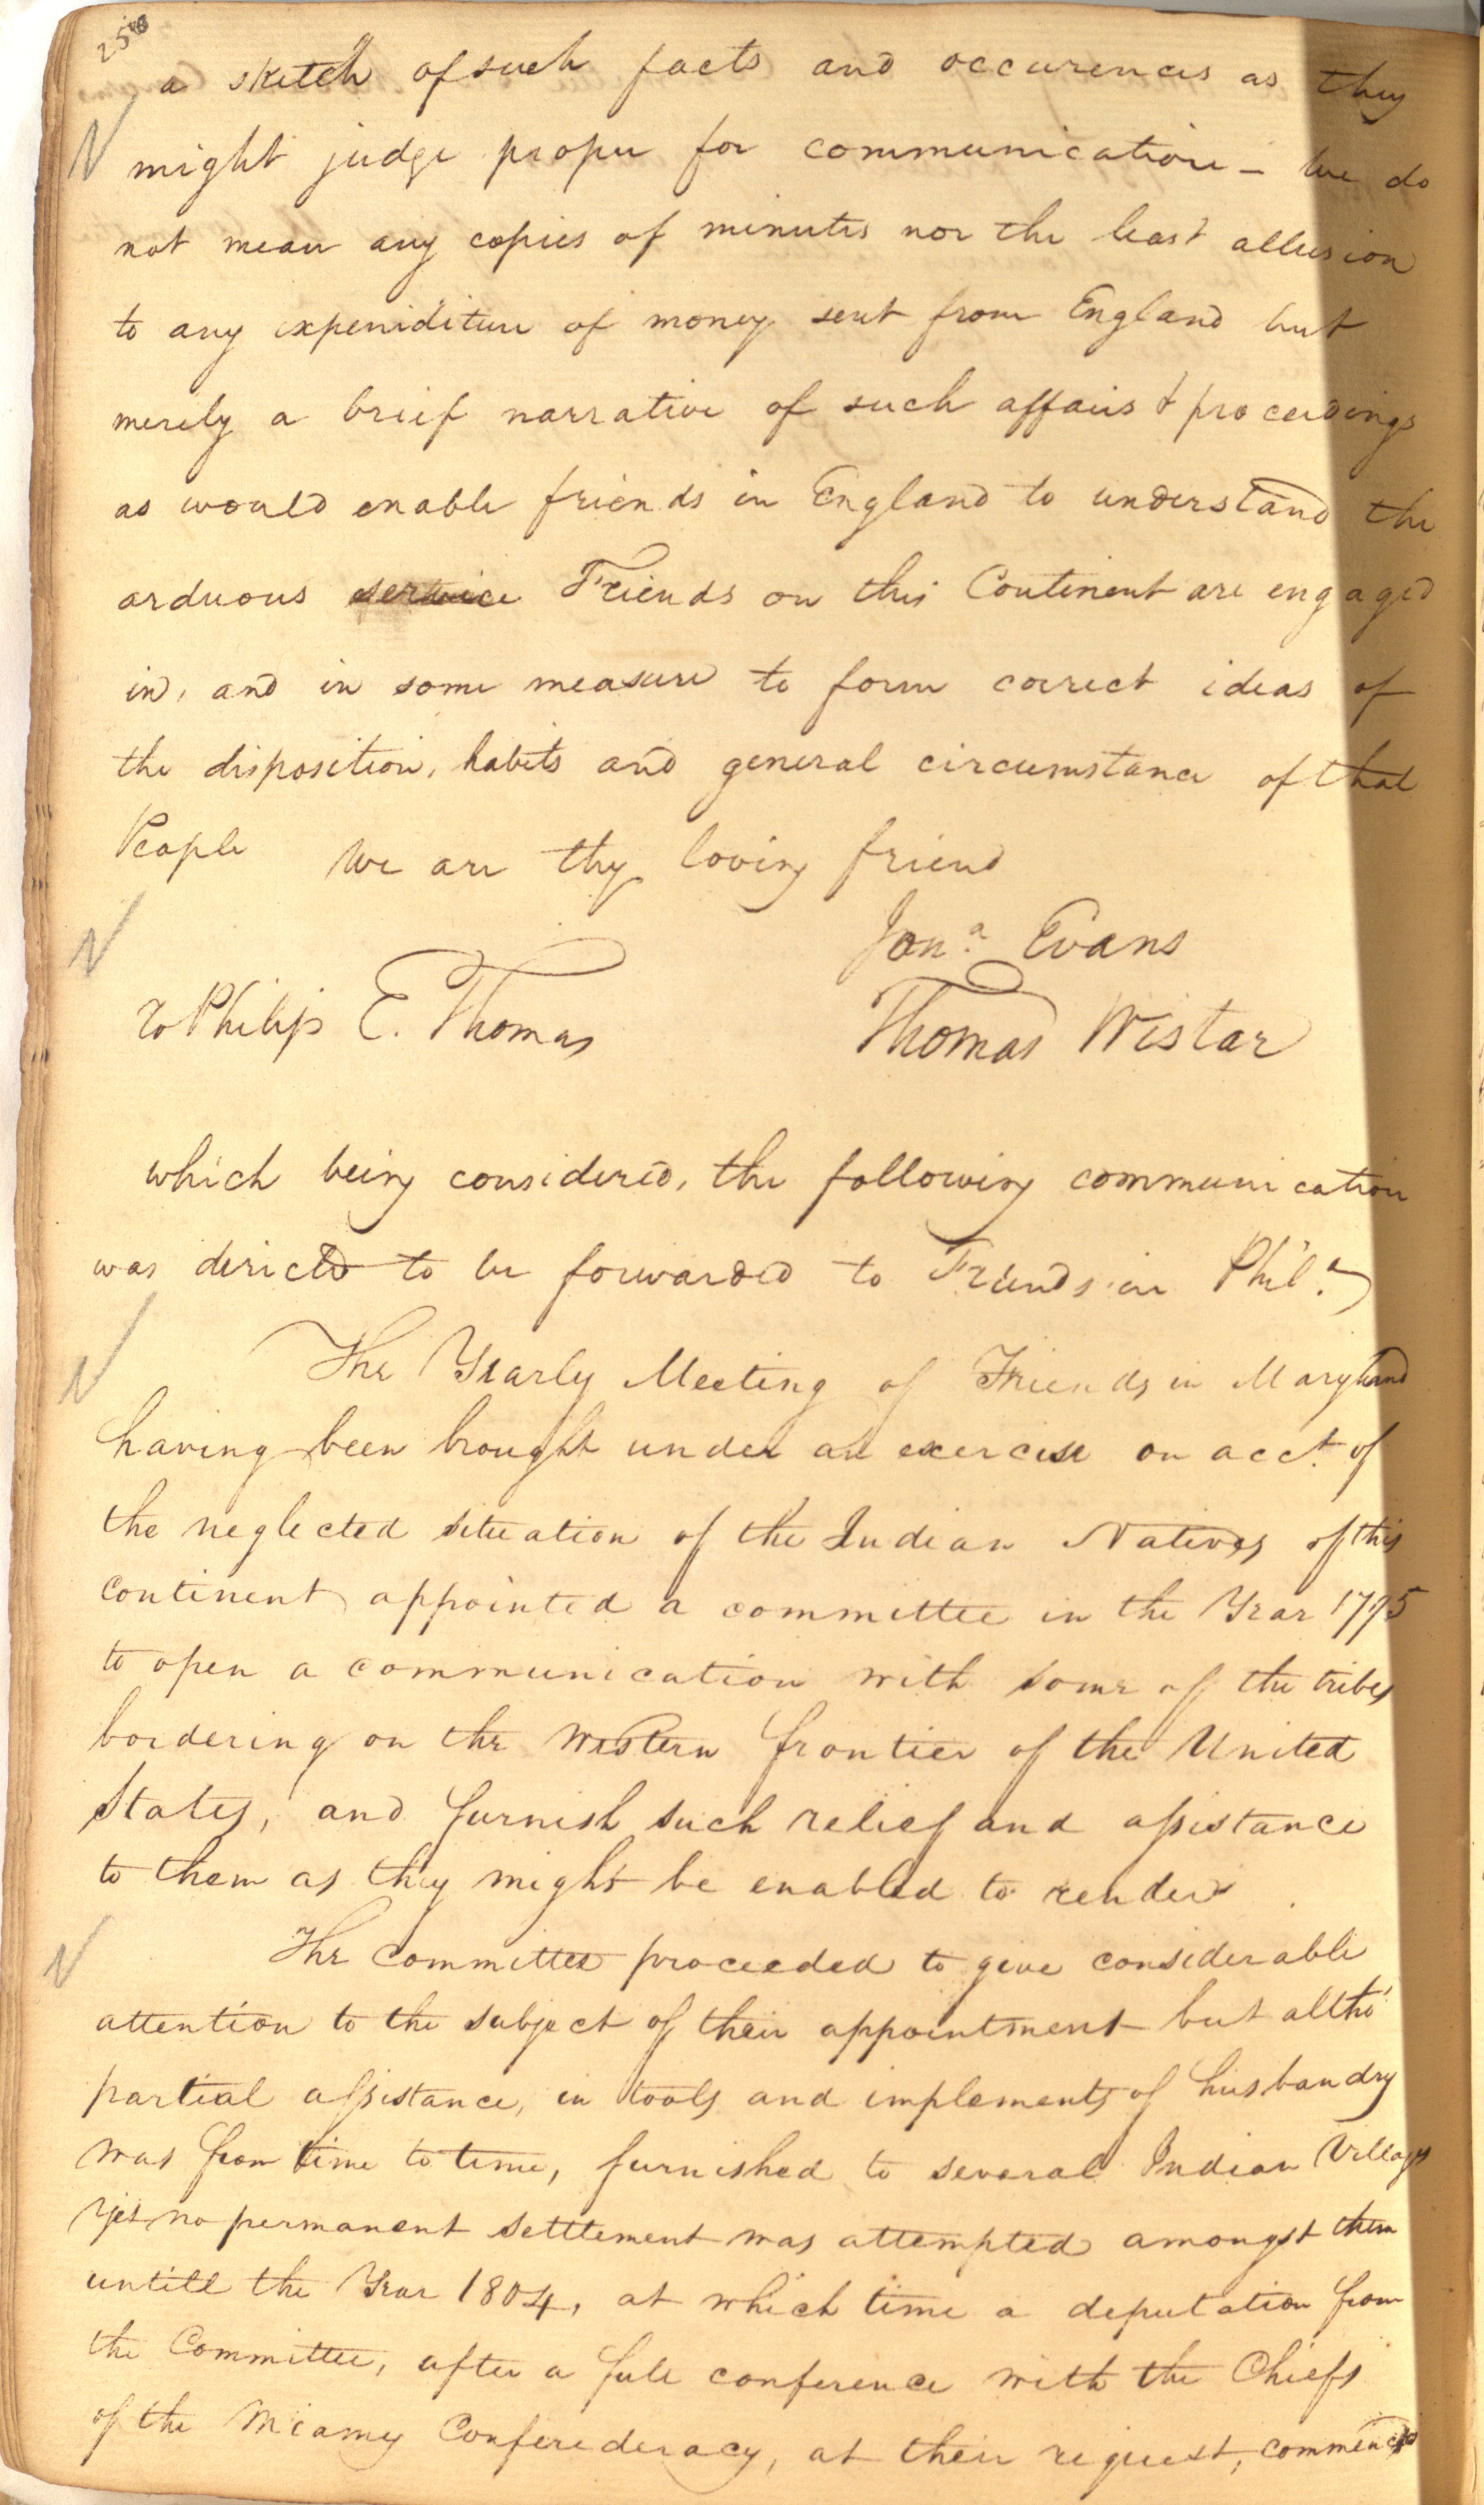 256
a sketch of such facts and occurences as they
might judge proper for communication - We do
not mean any copies of minutes nor the least allusion
to any expeniditure of money sent from England but
merely a brief narrative of such affairs & proceedings
as would enable friends in England to understand the
arduous service Friends on this Continent are engaged
in, and in some measure to form correct ideas of
the disposition, habits and general circumstance of that
People We are thy loving friend
Jona. Evans
To Philip E. Thomas
Thomas Wistar
which being considered, the following communication
was dericted to be forwarded to Friends in Phila.
The Yearly Meeting of Friends in Maryland
having been brought under an exercise on acct. of
the neglected situation of the Indian Natives of this
continent appointed a committee in the Year 1795
to open a communication with some of the tribes
bordering on the Western frontier of the United
States, and furnish such relief and assistance
to them as they might be enabled to render.
The Committee proceeded to give considerable
attention to the subject of their appointment but altho'
partial assistance, in tools and implements of husbandry
was from time to time, furnished to several Indian Villages
Yet no permanent settlement was attempted amongst them
untill the Year 1804, at which time a deputation from
the Committee, after a full conference with the Chiefs
of the Miamy Conferederacy, at their request, commenced